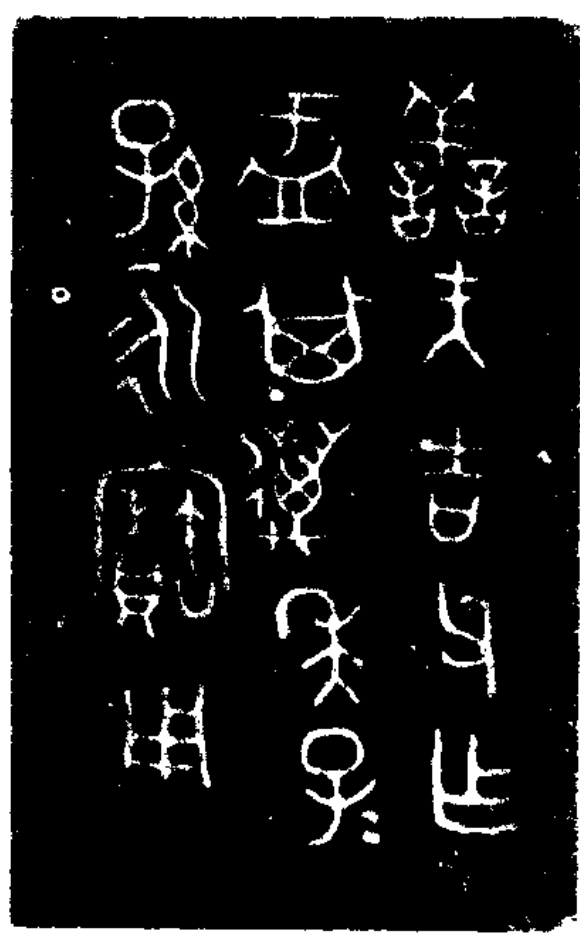 善夫吉父乍
盂其萬年子＝
孫＝永寶用